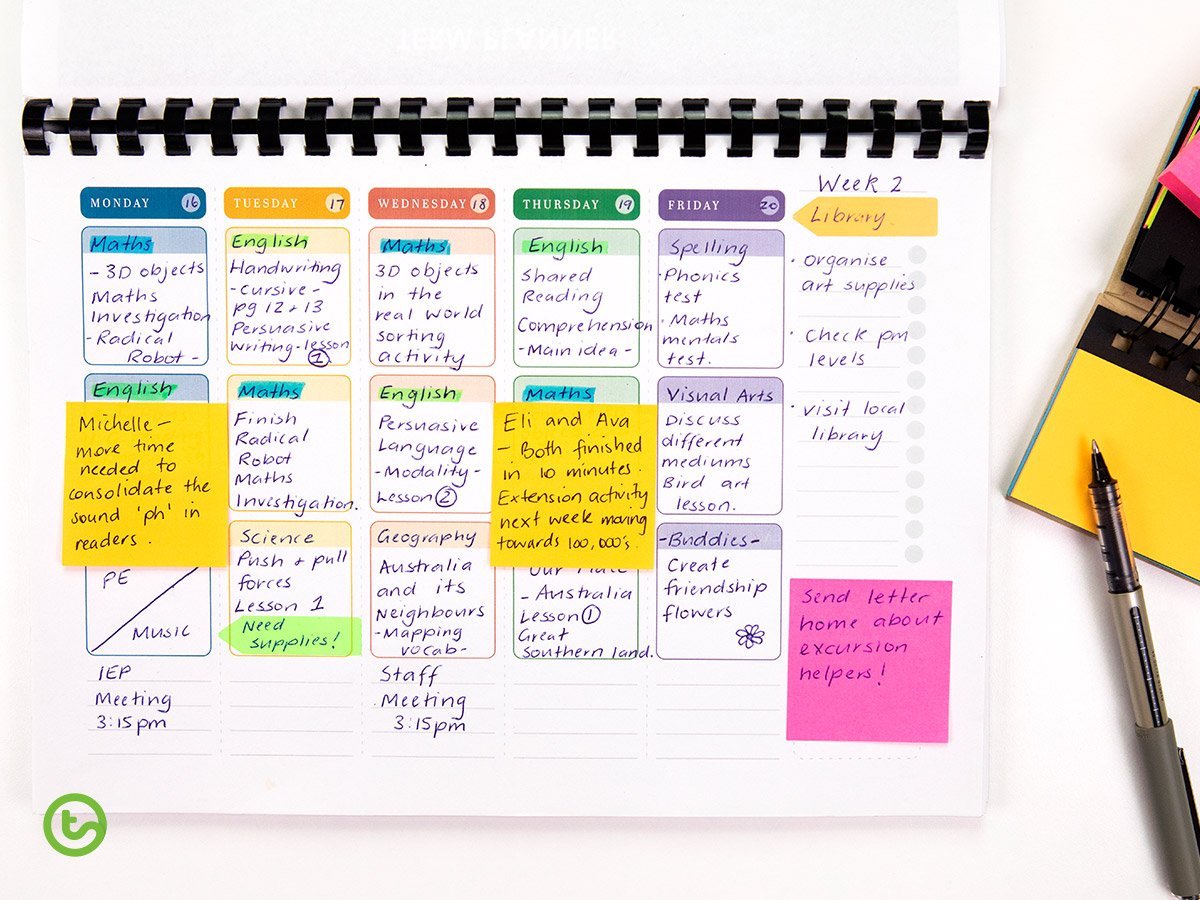 TERM PLANNER
MONDAY 16
Maths
- 3D objects
Maths
Investigation
- Radical
Robot -
English
Michelle -
more time
needed to
consolidate the
sound 'ph' in
readers.
PE
MUSIC
IEP
Meeting
3:15pm
TUESDAY 17
English
Handwriting
- cursive -
pg 12 + 13
Persuasive
writing - lesson
1
Maths
Finish
Radical
Robot
Maths
Investigation.
Science
Push + pull
forces
Lesson 1
Need
supplies!
WEDNESDAY 18
Maths
3D objects
in the
real world
sorting
activity
English
Persuasive
Language
- Modality -
Lesson 2
Geography
Australia
and its
Neighbours
- Mapping
vocab -
Staff
Meeting
3:15pm
THURSDAY 19
English
Shared
Reading
Comprehension
- Main idea -
Maths
Eli and Ava
- Both finished
in 10 minutes.
Extension activity
next week moving
towards 100,000's.
- Australia
Lesson 1
Great
Southern land.
FRIDAY 20
Spelling
· Phonics
test
· Maths
mentals
test.
Visual Arts
Discuss
different
mediums
Bird art
lesson.
- Buddies -
Create
friendship
flowers
Week 2
Library
· organise
art supplies
· Check pm
levels
· visit local
library
Send letter
home about
excursion
helpers!
t